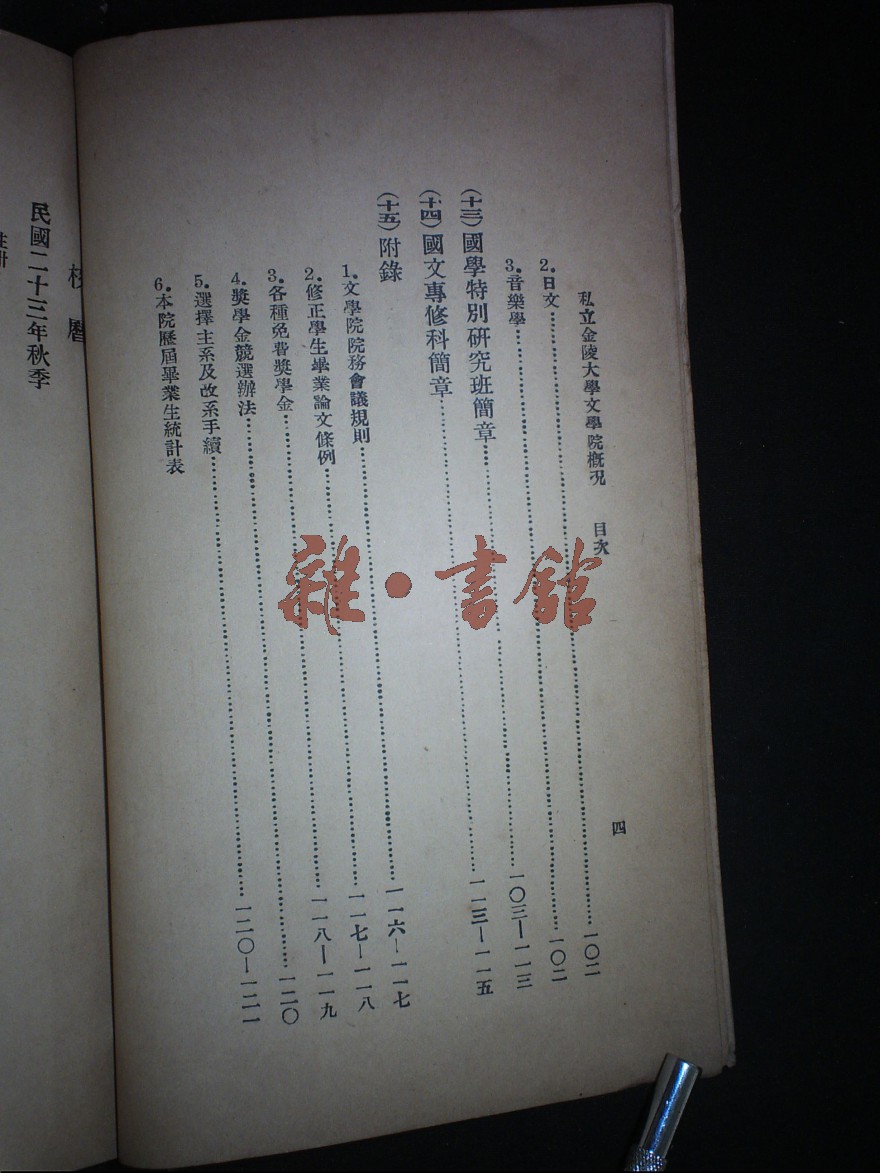 私立金陵大學文學院概况 目次 四
2.日文……一〇二
3.音樂學……一〇二
(十三)國學特別研究班簡章……一〇三—一一三
(十四)國文專修科簡章……一一三—一一五
(十五)附錄
1.文學院院務會議規則……一一六—一一七
2.修正學生畢業論文條例……一一七—一一八
3.各種免費獎學金……一一八—一一九
4.獎學金競選辦法……一二〇
5.選擇主系及改系手續……一二〇—一二一
6.本院歷屆畢業生統計表
校曆
民國二十三年秋季
雜·書館